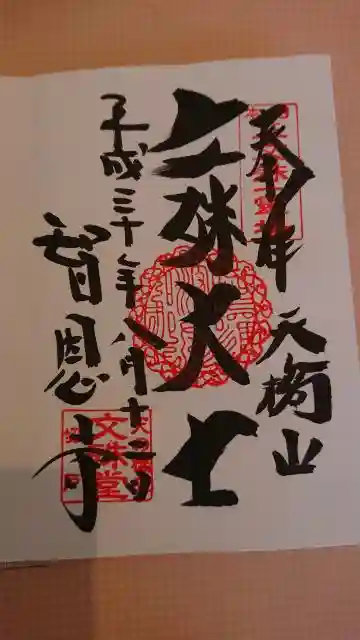 奉拝 天橋山
文殊大士
平成三十年八月
智恩寺
文殊堂